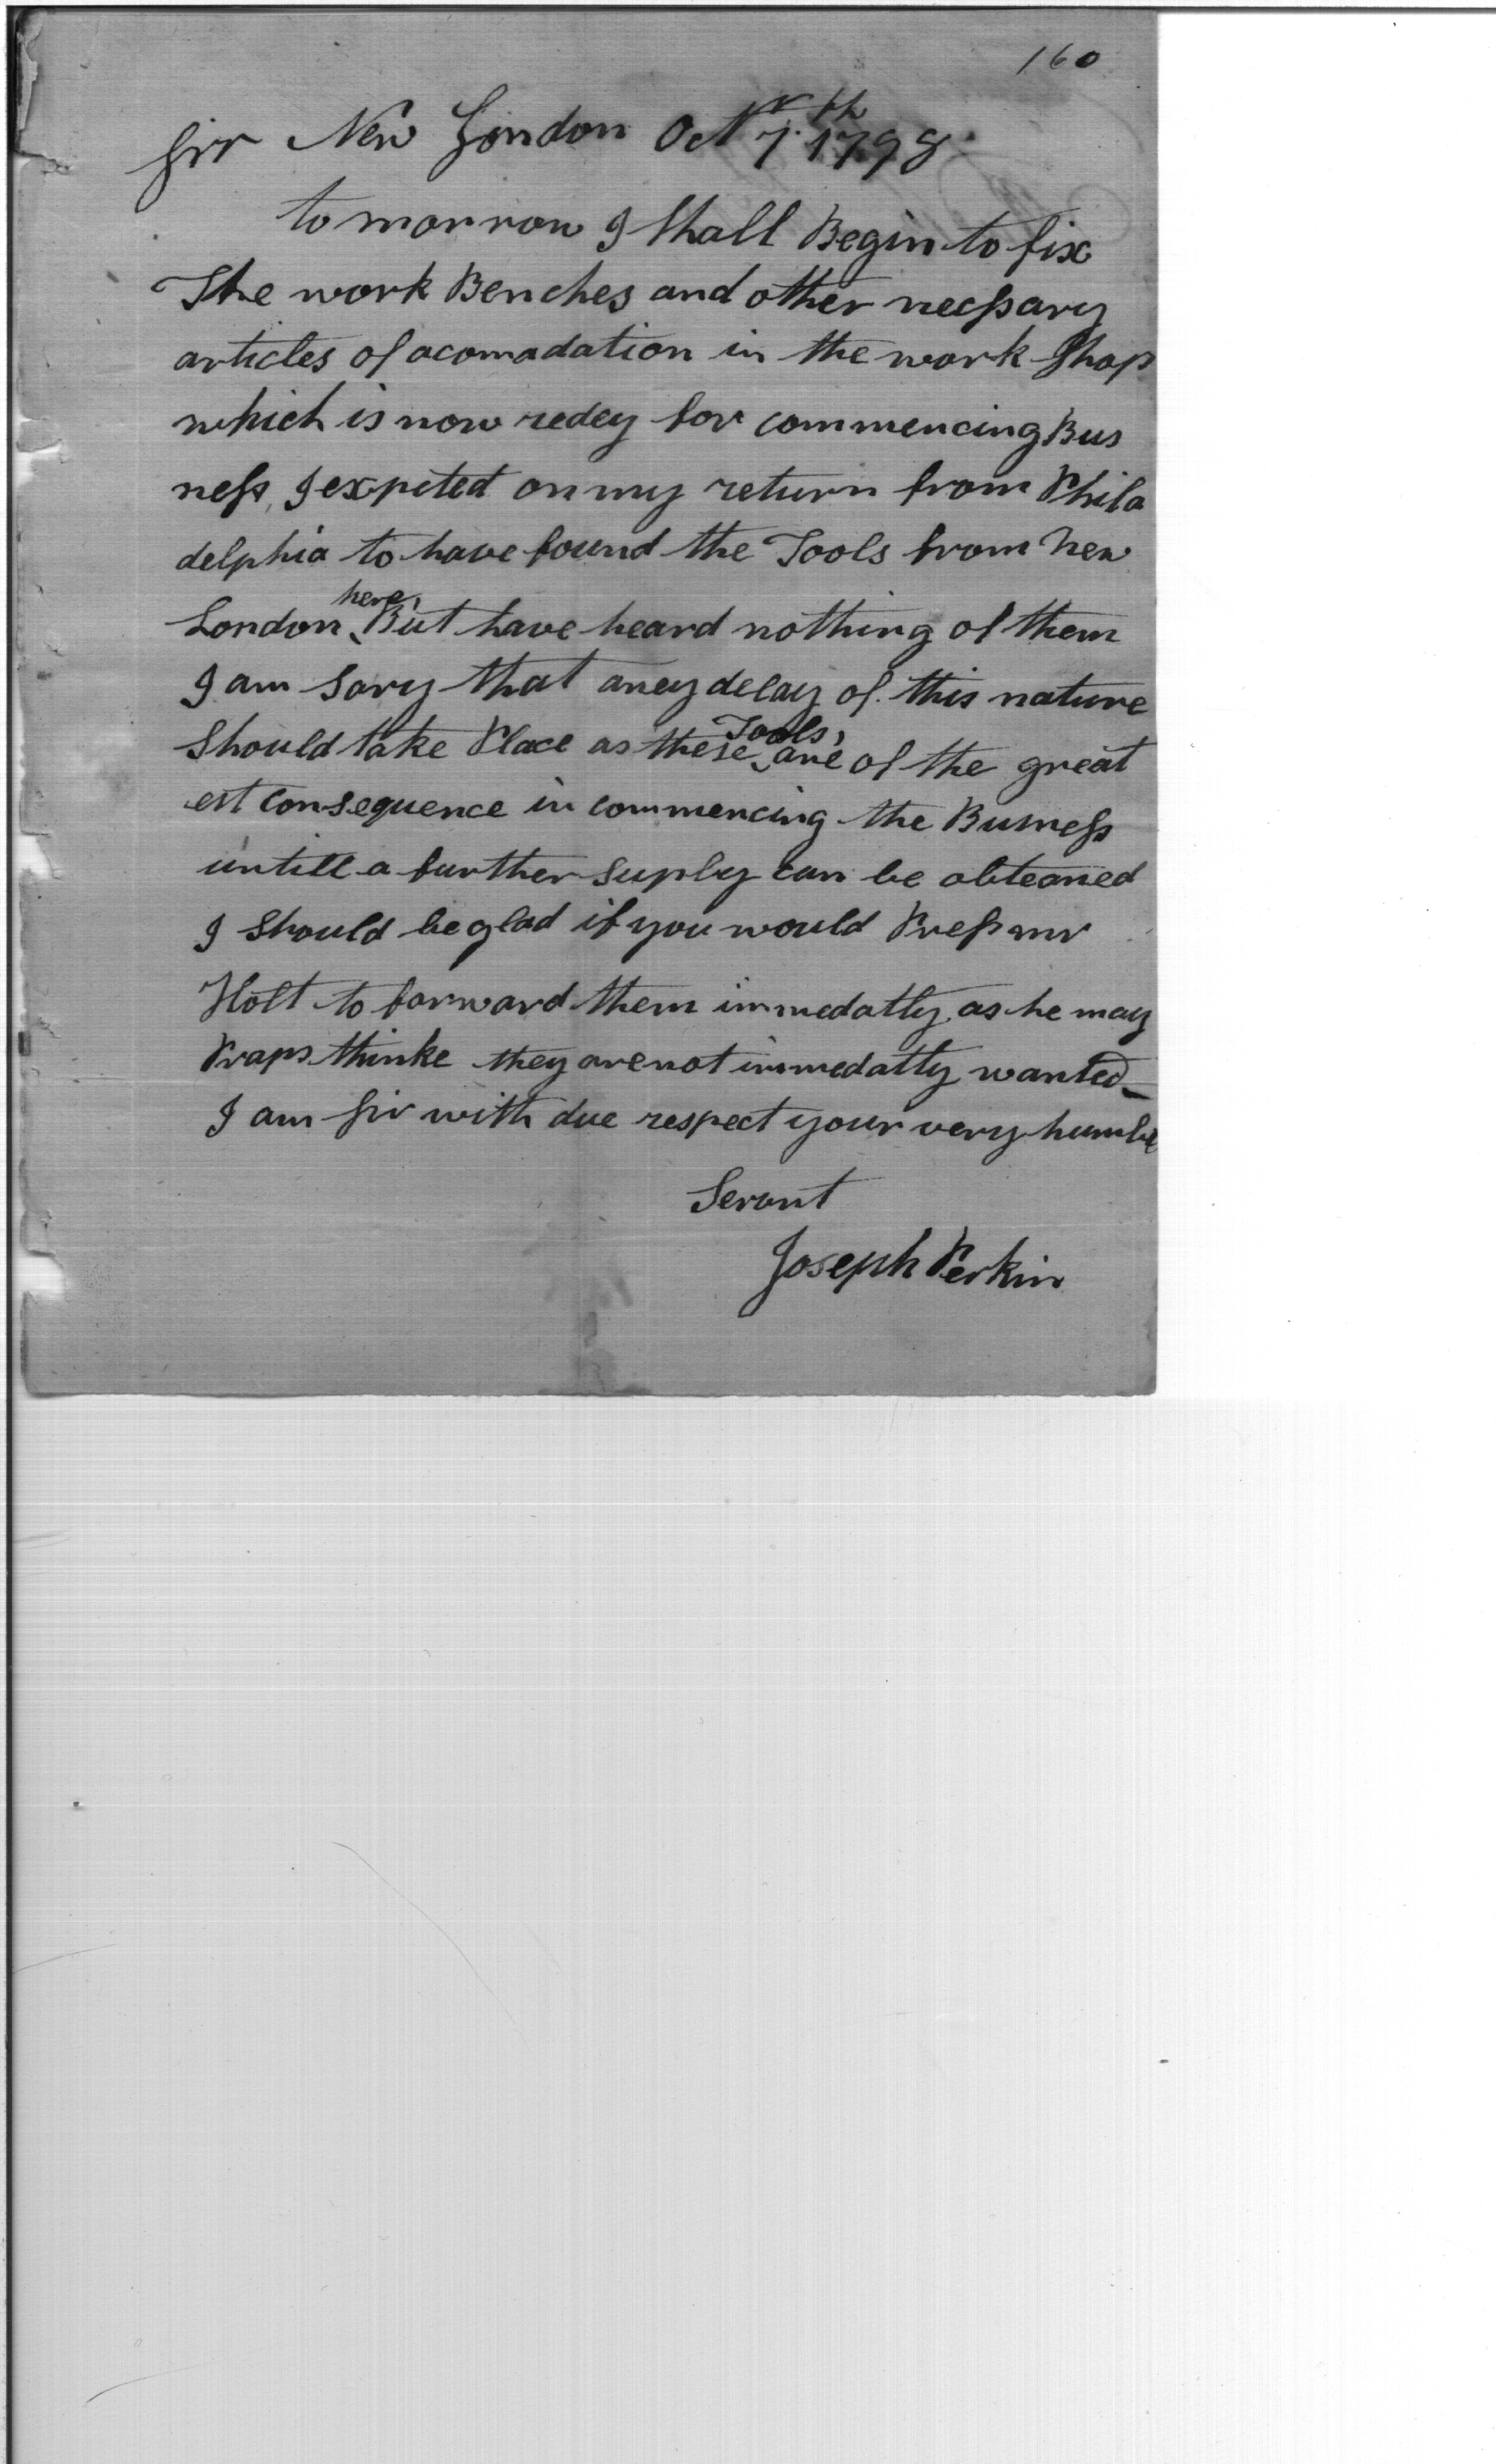 160
Sir New London Octr 7th 1798
to morrow I Shall Begin to fix
The work Benches and other necessary
articles of acomadation in the work Shop
which is now redey for commencing Bus
ness, I expeted on my return from Phila
delphia to have found the Tools from New
London here, But have heard nothing of them
I am Sory that aney delay of this nature
Should take Place as these Tools, are of the great
est consequence in commencing the Busness
untill a further suply can be obteaned
I should be glad if you would Press mr
Holt to forward them immedatly, as he may
Praps thinke they are not immedatly wanted
I am Sir with due respect your very humble
Servnt
Joseph Perkin